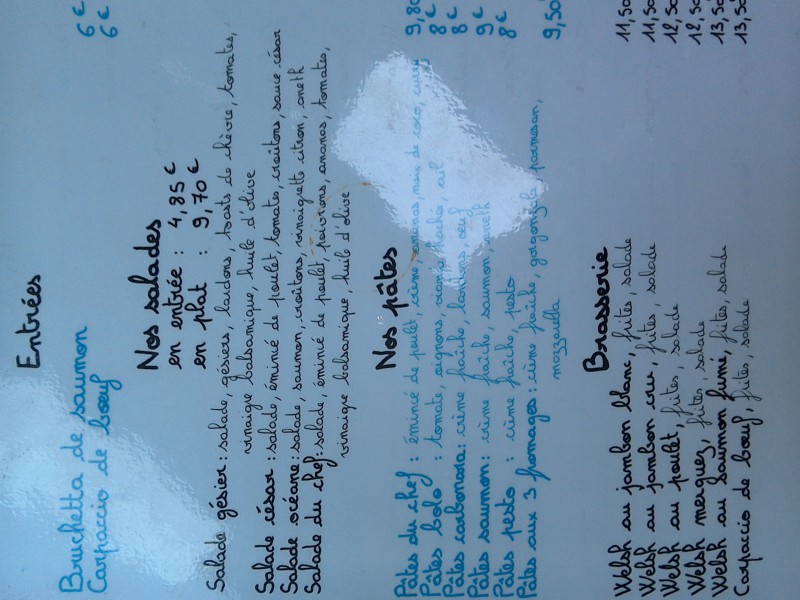 Entrées
Bruchetta de saumon 6 €
Carpaccio de bœuf 6 €
Nos salades
en entrée : 4,85 €
en plat : 9,70 €
Salade gésier : salade, gésiers, lardons, toasts de chèvre, tomates,
vinaigre balsamique, huile d'olive
Salade césar : salade, émincé de poulet, tomates, croûtons, sauce césar
Salade océane : salade, saumon, croûtons, vinaigrette citron, aneth
Salade du chef : salade, émincé de poulet, poivrons, ananas, tomates,
vinaigre balsamique, huile d'olive
Nos pâtes
Pâtes du chef : émincé de poulet, crème, ananas, noix de coco, curry 9,80
Pâtes bolo : tomate, oignons, viande hachée, ail 8 €
Pâtes carbonara : crème fraîche, lardons, oeuf 8 €
Pâtes saumon : crème fraîche, saumon, aneth 9 €
Pâtes pesto : crème fraîche, pesto 8 €
Pâtes aux 3 fromages : crème fraîche, gorgonzola, parmesan, 9,50
mozzarella
Brasserie
Welsh au jambon blanc, frites, salade 11,50
Welsh au jambon cru, frites, salade 11,50
Welsh au poulet, frites, salade 12,50
Welsh merguez, frites, salade 12,50
Welsh au saumon fumé, frites, salade 13,50
Carpaccio de bœuf, frites, salade 13,50